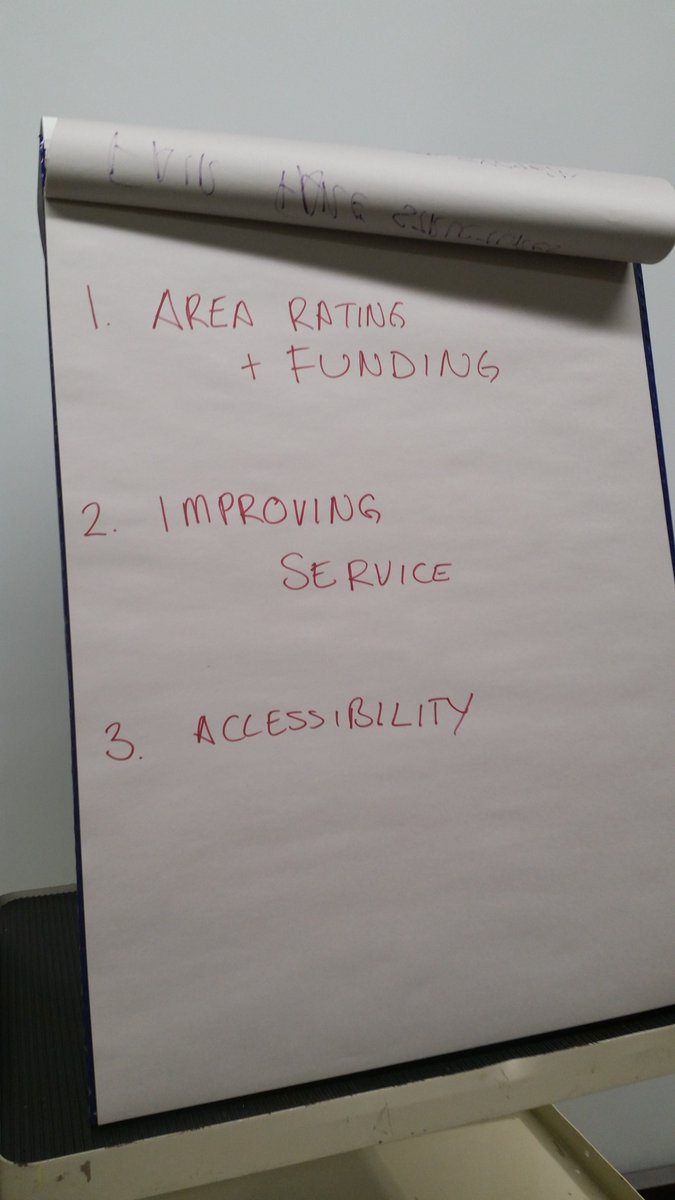 1. AREA RATING
+ FUNDING
2. IMPROVING
SERVICE
3. ACCESSIBILITY